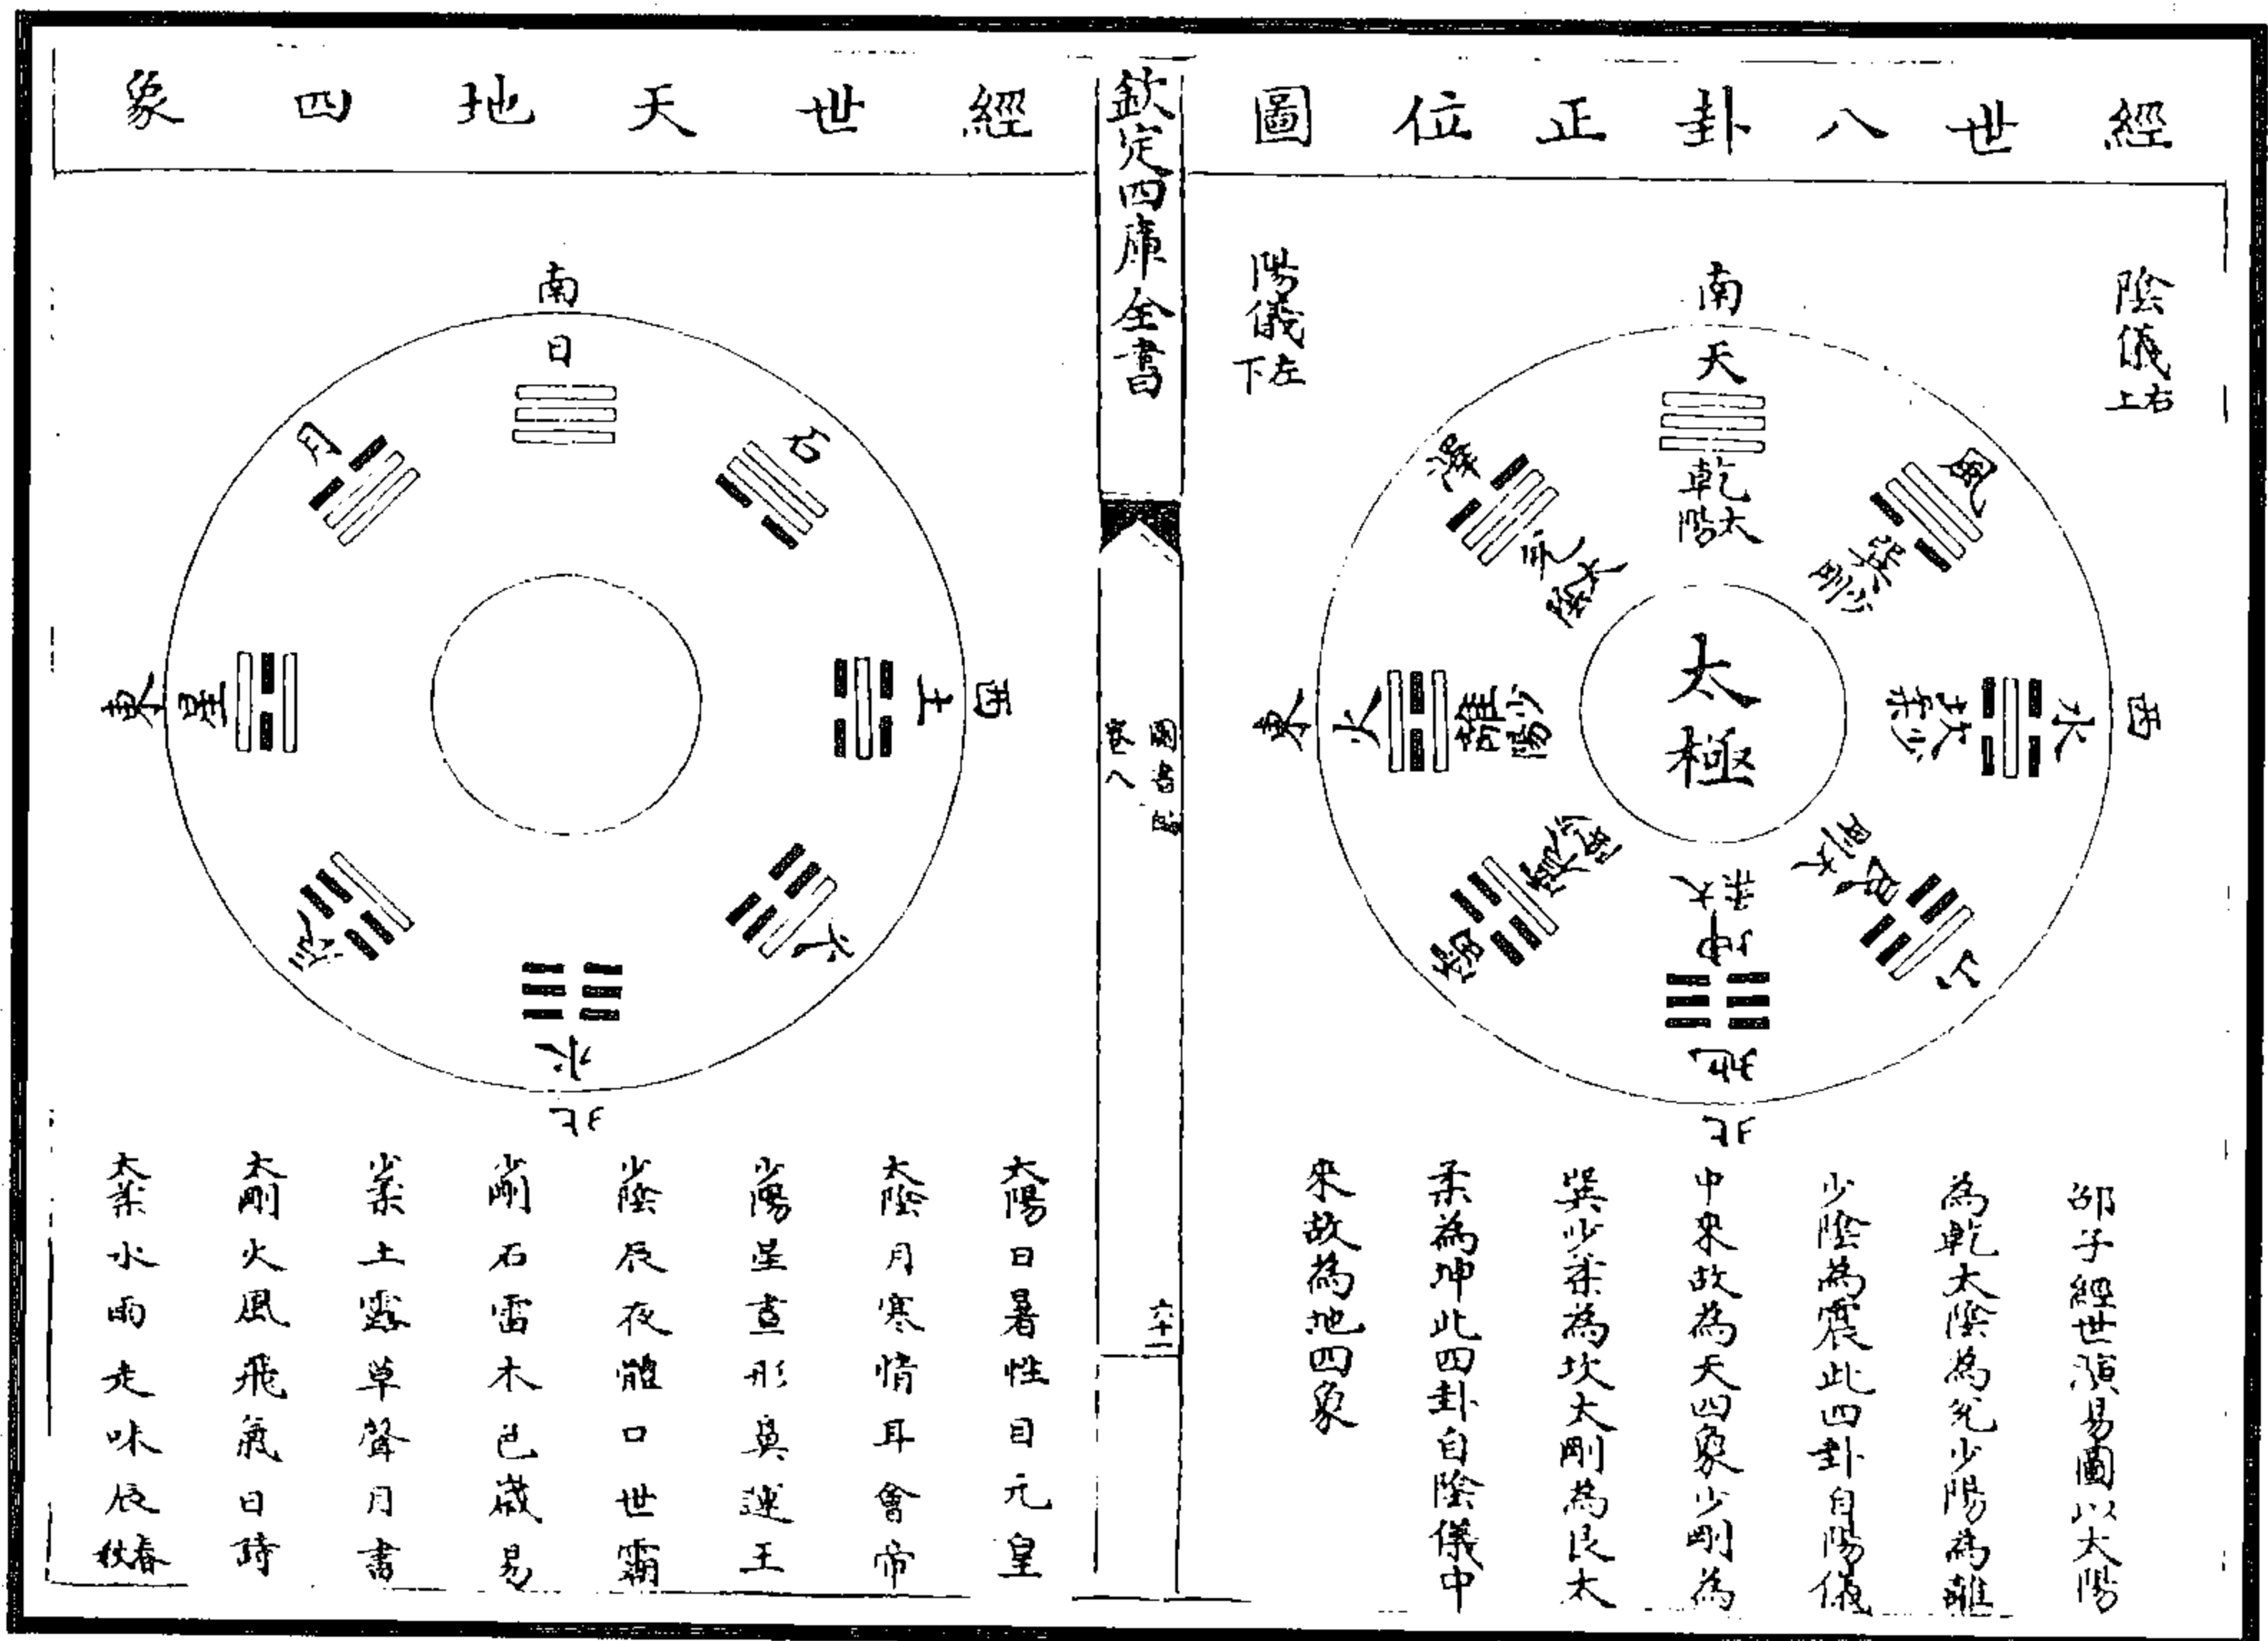 經世八卦正位圖
陰儀右上
陽儀左下
南
天
乾太陽
風
巽少剛
西
水
坎少柔
山
艮太剛
北
地
坤太柔
雷
震少陰
東
火
離少陽
澤
兌太陰
太極
邵子經世演易圖以太陽
為乾太陰為兌少陽為離
少陰為震此四卦自陽儀
中來故為天四象少剛為
巽少柔為坎太剛為艮太
柔為坤此四卦自陰儀中
來故為地四象
欽定四庫全書
圖書
卷八
六十二
經世天地四象
南
日
石
西
土
火
北
水
辰
東
星
月
太陽日暑性目元皇
太陰月寒情耳會帝
少陽星晝形鼻運王
少陰辰夜體口世霸
少剛石雷木色歲易
少柔土露草聲月書
太剛火風飛氣日時
太柔水雨走味辰春秋